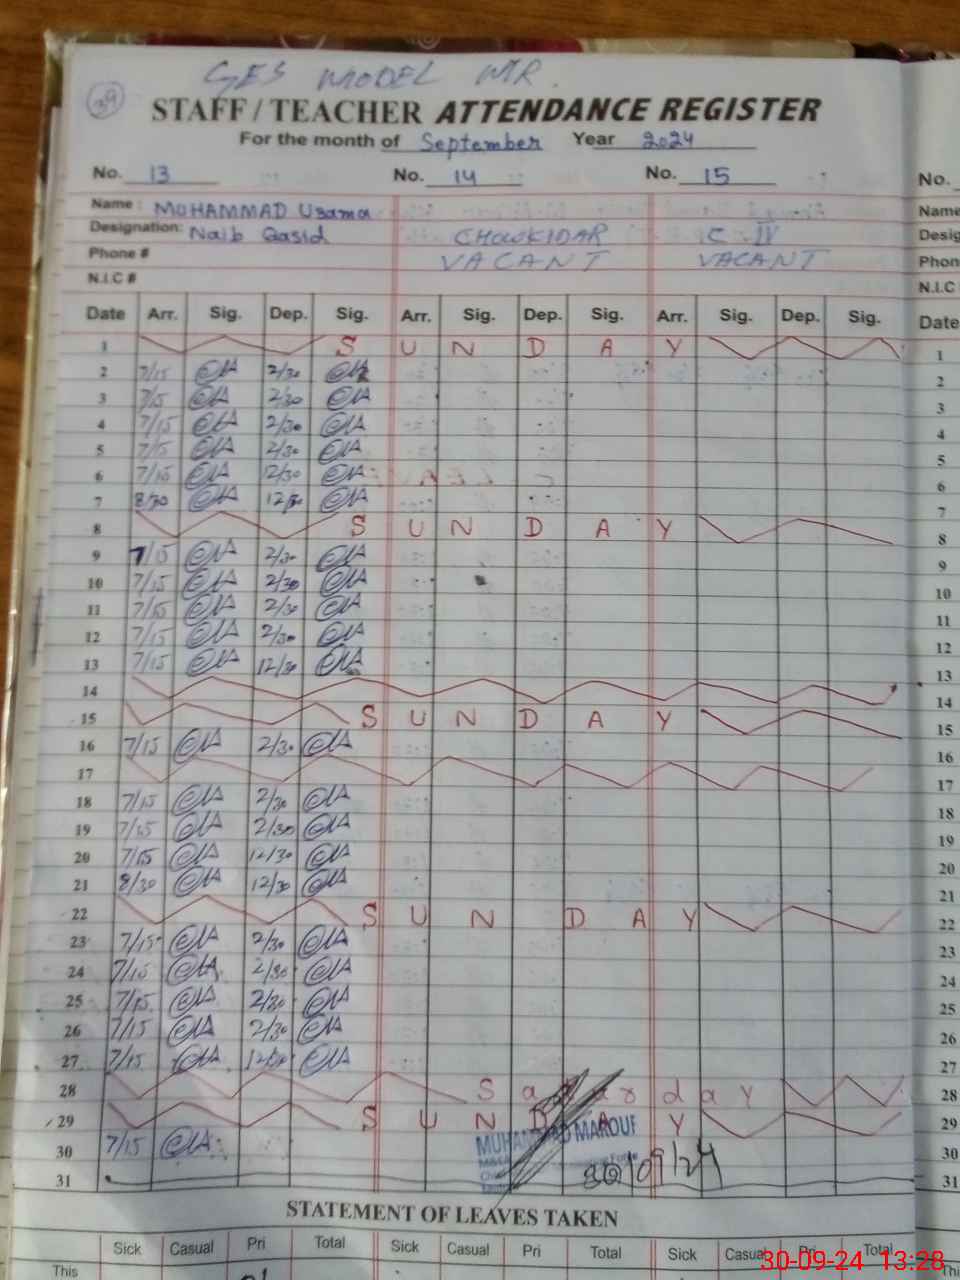 39
GES MODEL MR.
STAFF / TEACHER ATTENDANCE REGISTER
For the month of September Year 2024
No. 13 No. 14 No. 15 No.
Name : MUHAMMAD Usama Name
Designation: Naib Qasid CHOWKIDAR C IV Desig
Phone # VACANT VACANT Phon
N.I.C # N.I.C
Date Arr. Sig. Dep. Sig. Arr. Sig. Dep. Sig. Arr. Sig. Dep. Sig. Date
1 S U N D A Y 1
2 7/15 2/30 2
3 7/15 2/30 3
4 7/15 2/30 4
5 7/15 2/30 5
6 7/15 12/30 6
7 8/30 7
8 S U N D A Y 8
9 7/15 2/30 9
10 7/15 2/30 10
11 7/15 2/30 11
12 7/15 2/30 12
13 7/15 12/30 13
14 14
15 S U N D A Y 15
16 7/15 2/30 16
17 17
18 7/15 2/30 18
19 7/15 2/30 19
20 7/15 12/30 20
21 8/30 12/30 21
22 S U N D A Y 22
23 7/15 2/30 23
24 7/15 2/30 24
25 7/15 2/30 25
26 7/15 2/30 26
27 7/15 12/30 27
28 Saturday 28
29 S U N D A Y 29
30 7/15 MUHAMMAD MAROUF 30
31 30/09/24 31
STATEMENT OF LEAVES TAKEN
Sick Casual Pri Total Sick Casual Pri Total Sick Casual Pri Total
This Thi
30-09-24 13:28